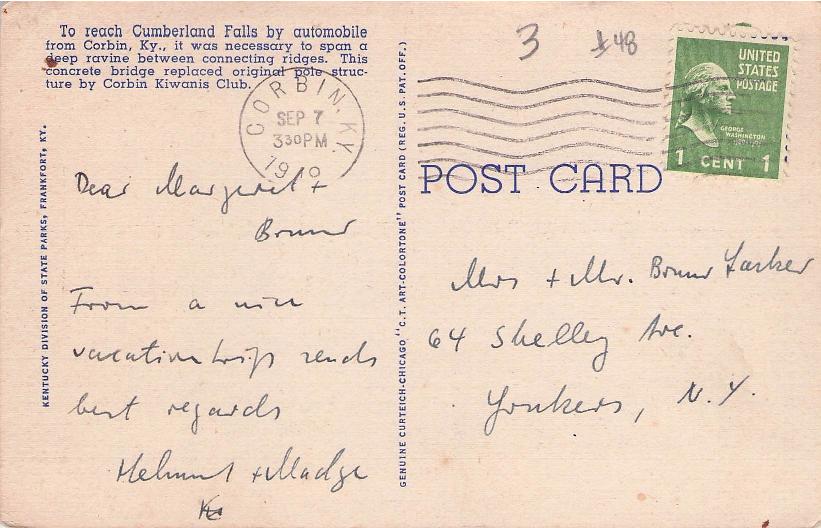 To reach Cumberland Falls by automobile
from Corbin, Ky., it was necessary to span a
deep ravine between connecting ridges. This
concrete bridge replaced original pole struc-
ture by Corbin Kiwanis Club.
CORBIN, KY.
SEP 7
3 30 PM
19
Dear Margaret +
Bruno
From a nice
vacation trip sends
best regards
Helmut + Madge
KENTUCKY DIVISION OF STATE PARKS, FRANKFORT, KY.
GENUINE CURTEICH-CHICAGO "C.T. ART-COLORTONE" POST CARD (REG. U.S. PAT. OFF.)
3 148
UNITED
STATES
POSTAGE
GEORGE
WASHINGTON
1 CENT 1
POST CARD
Mrs + Mr. Bruno
64 Shelley Ave.
Yonkers, N.Y.